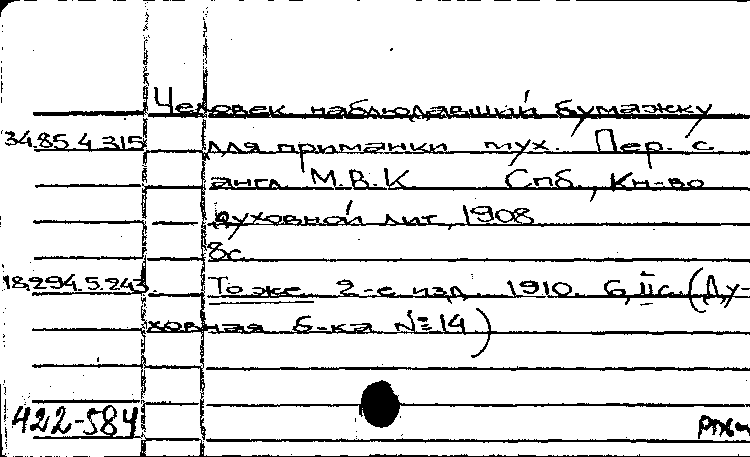 Человек наблюдавший бумажку
34.85.4.315 для приманки мух. Пер. с
англ. М.В.К. Спб., Кн-во
духовной лит, 1908
8с.
18.294.5.243. То же. 2-е изд. 1910. 6, II с. (Ду-
ховная б-ка № 14)
422-584